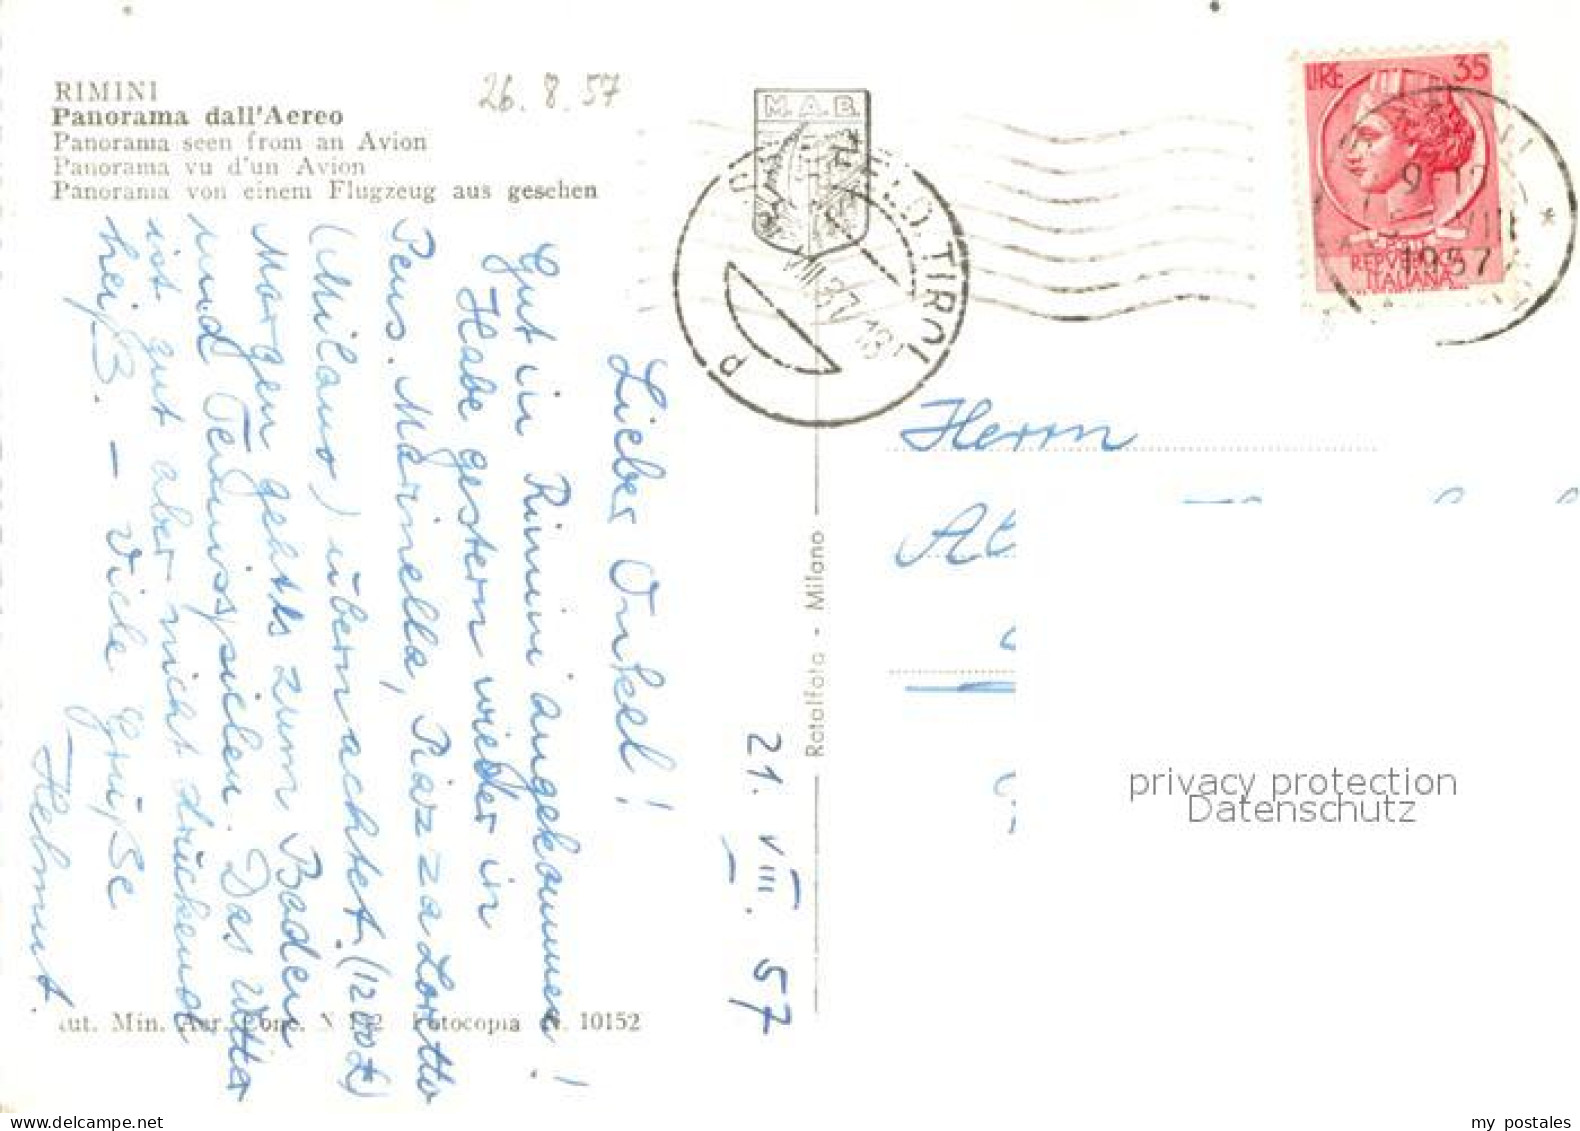 RIMINI
Panorama dall'Aereo
Panorama seen from an Avion
Panorama vu d'un Avion
Panorama von einem Flugzeug aus gesehen
26. 8. 57
Lieber Onkel!
Gut in Rimini angekommen!
Habe gestern wieder in
Pens. Marinella, Piazza Loretto
(Milano) übernachtet. (1200 £)
Morgen gehts zum Baden
und Tennisspielen. Das Wetter
ist gut aber nicht drückend
heiß. – Viele Grüße
Helmut.
21. VIII. 57
Aut. Min. Aer. Conc. N Fotocopia N. 10152
Rotalfoto - Milano
M. A. B.
FELD, TIROL
LIRE 35
POSTE
REPVBBLICA
ITALIANA
9-12
1957
Herrn
privacy protection
Datenschutz
my postales